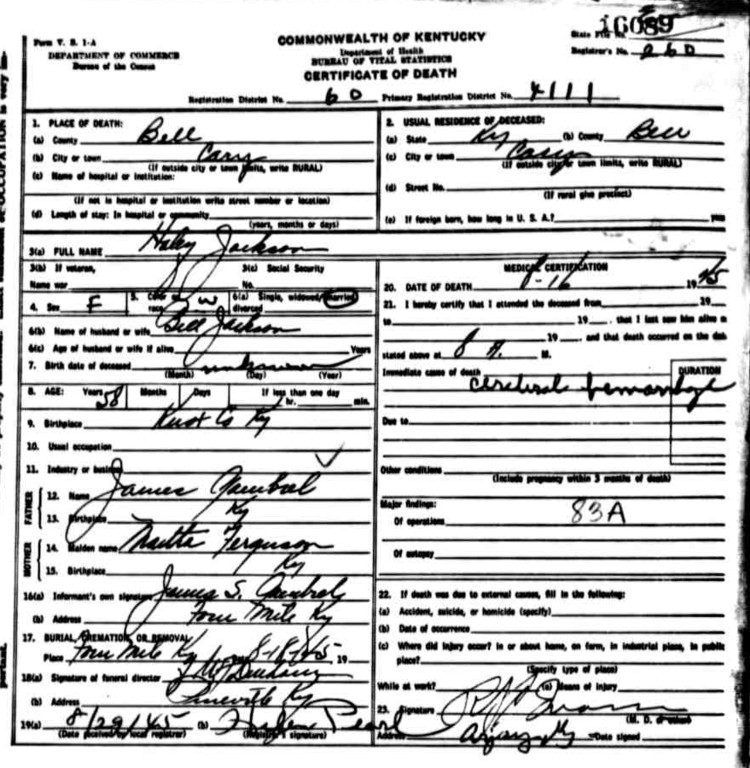 16089
Form V. S. 1-A
COMMONWEALTH OF KENTUCKY
State File No.
DEPARTMENT OF COMMERCE
Department of Health
Registrar's No. 260
Bureau of the Census
BUREAU OF VITAL STATISTICS
CERTIFICATE OF DEATH
Registration District No. 60 Primary Registration District No. 4111
1. PLACE OF DEATH:
(a) County Bell
(b) City or town Cary
(If outside city or town limits, write RURAL)
(c) Name of hospital or institution:
(If not in hospital or institution write street number or location)
(d) Length of stay: In hospital or community
(years, months or days)
2. USUAL RESIDENCE OF DECEASED:
(a) State Ky (b) County Bell
(c) City or town Cary
(If outside city or town limits, write RURAL)
(d) Street No.
(If rural give precinct)
(e) If foreign born, how long in U. S. A.?
3(a) FULL NAME Haley Jackson
3(b) If veteran, 3(c) Social Security
Name war No.
4. Sex F 5. Color or race W 6(a) Single, widowed, married, divorced
6(b) Name of husband or wife Bill Jackson
6(c) Age of husband or wife if alive Years
7. Birth date of deceased unknown
(Month) (Day) (Year)
8. AGE: Years 58 Months Days If less than one day
hr. min.
9. Birthplace Knox Co Ky
10. Usual occupation
11. Industry or business
FATHER
12. Name James Gambrel
13. Birthplace Ky
MOTHER
14. Maiden name Martha Ferguson
15. Birthplace Ky
16(a) Informant's own signature James S. Gambrel
(b) Address Four Mile Ky
17. BURIAL, CREMATION, OR REMOVAL
Place Four Mile Ky 8-18-1945 19
18(a) Signature of funeral director
(b) Address Pineville Ky
19(a) 8/29/45 (b) Pearl
(Date received by local registrar) (Registrar's signature)
MEDICAL CERTIFICATION
20. DATE OF DEATH 8-16 1945
21. I hereby certify that I attended the deceased from 19
to 19 , that I last saw him alive
19 , and that death occurred on the date
stated above at 8 A. M.
Immediate cause of death DURATION
cerebral hemorrhage
Due to
Other conditions
(Include pregnancy within 3 months of death)
Major findings:
Of operations 83A
Of autopsy
22. If death was due to external causes, fill in the following:
(a) Accident, suicide, or homicide (specify)
(b) Date of occurrence
(c) Where did injury occur? In or about home, on farm, in industrial place, in public
place?
(Specify type of place)
While at work? (e) Means of injury
23. Signature
(M. D. or other)
Address Arjay Ky Date signed